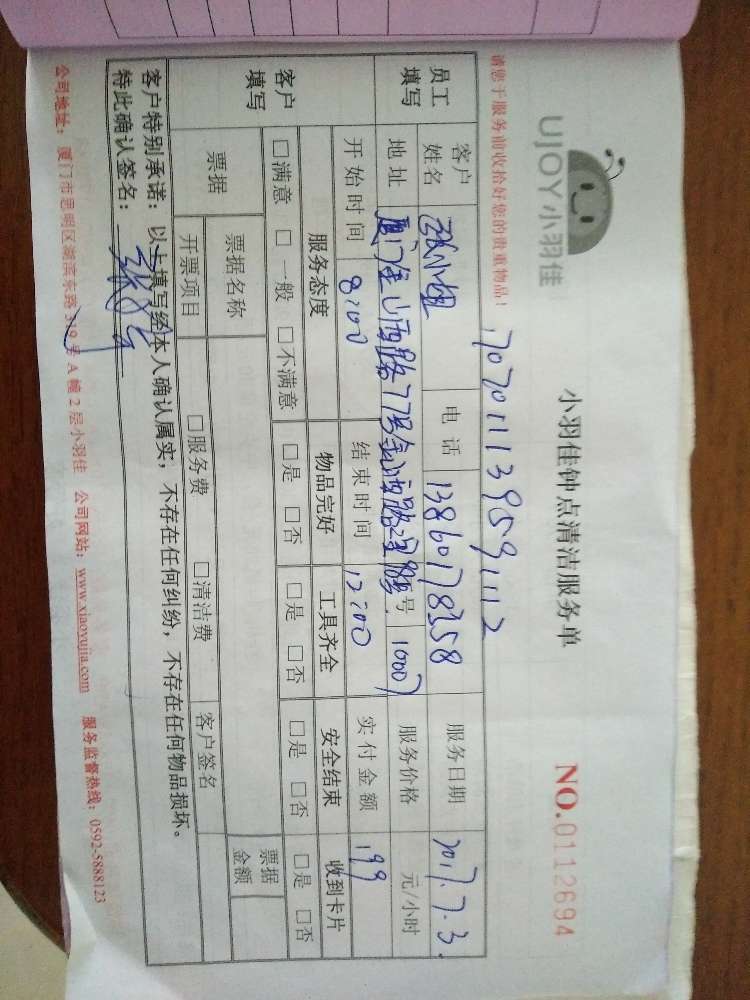 UJOY小羽佳
小羽佳钟点清洁服务单
NO.0112694
请您于服务前收拾好您的贵重物品!
17070111395911112
员工填写 客户姓名 张小姐 电话 13860178358 服务日期 2017.7.3.
地址 号 1007 服务价格 元/小时
开始时间 8:00 结束时间 12:00 实付金额 199
客户填写 服务态度 物品完好 工具齐全 安全结束 收到卡片
□满意 □一般 □不满意 □是 □否 □是 □否 □是 □否 □是 □否
票据 票据名称 票据金额
开票项目 □服务费 □清洁费 客户签名
客户特别承诺:以上填写经本人确认属实,不存在任何纠纷,不存在任何物品损坏。
特此确认签名:
公司地址:厦门市思明区湖滨东路319号A幢2层小羽佳 公司网站:www.xiaoyujia.com 服务监督热线:0592-5888123